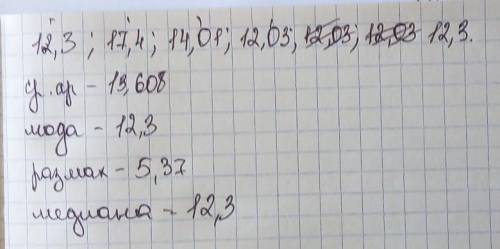 12,3; 17,4; 14,01; 12,03; 12,03; 12,03 12,3.
ср. ар – 13,608
мода – 12,3
размах – 5,37
медиана – 12,3